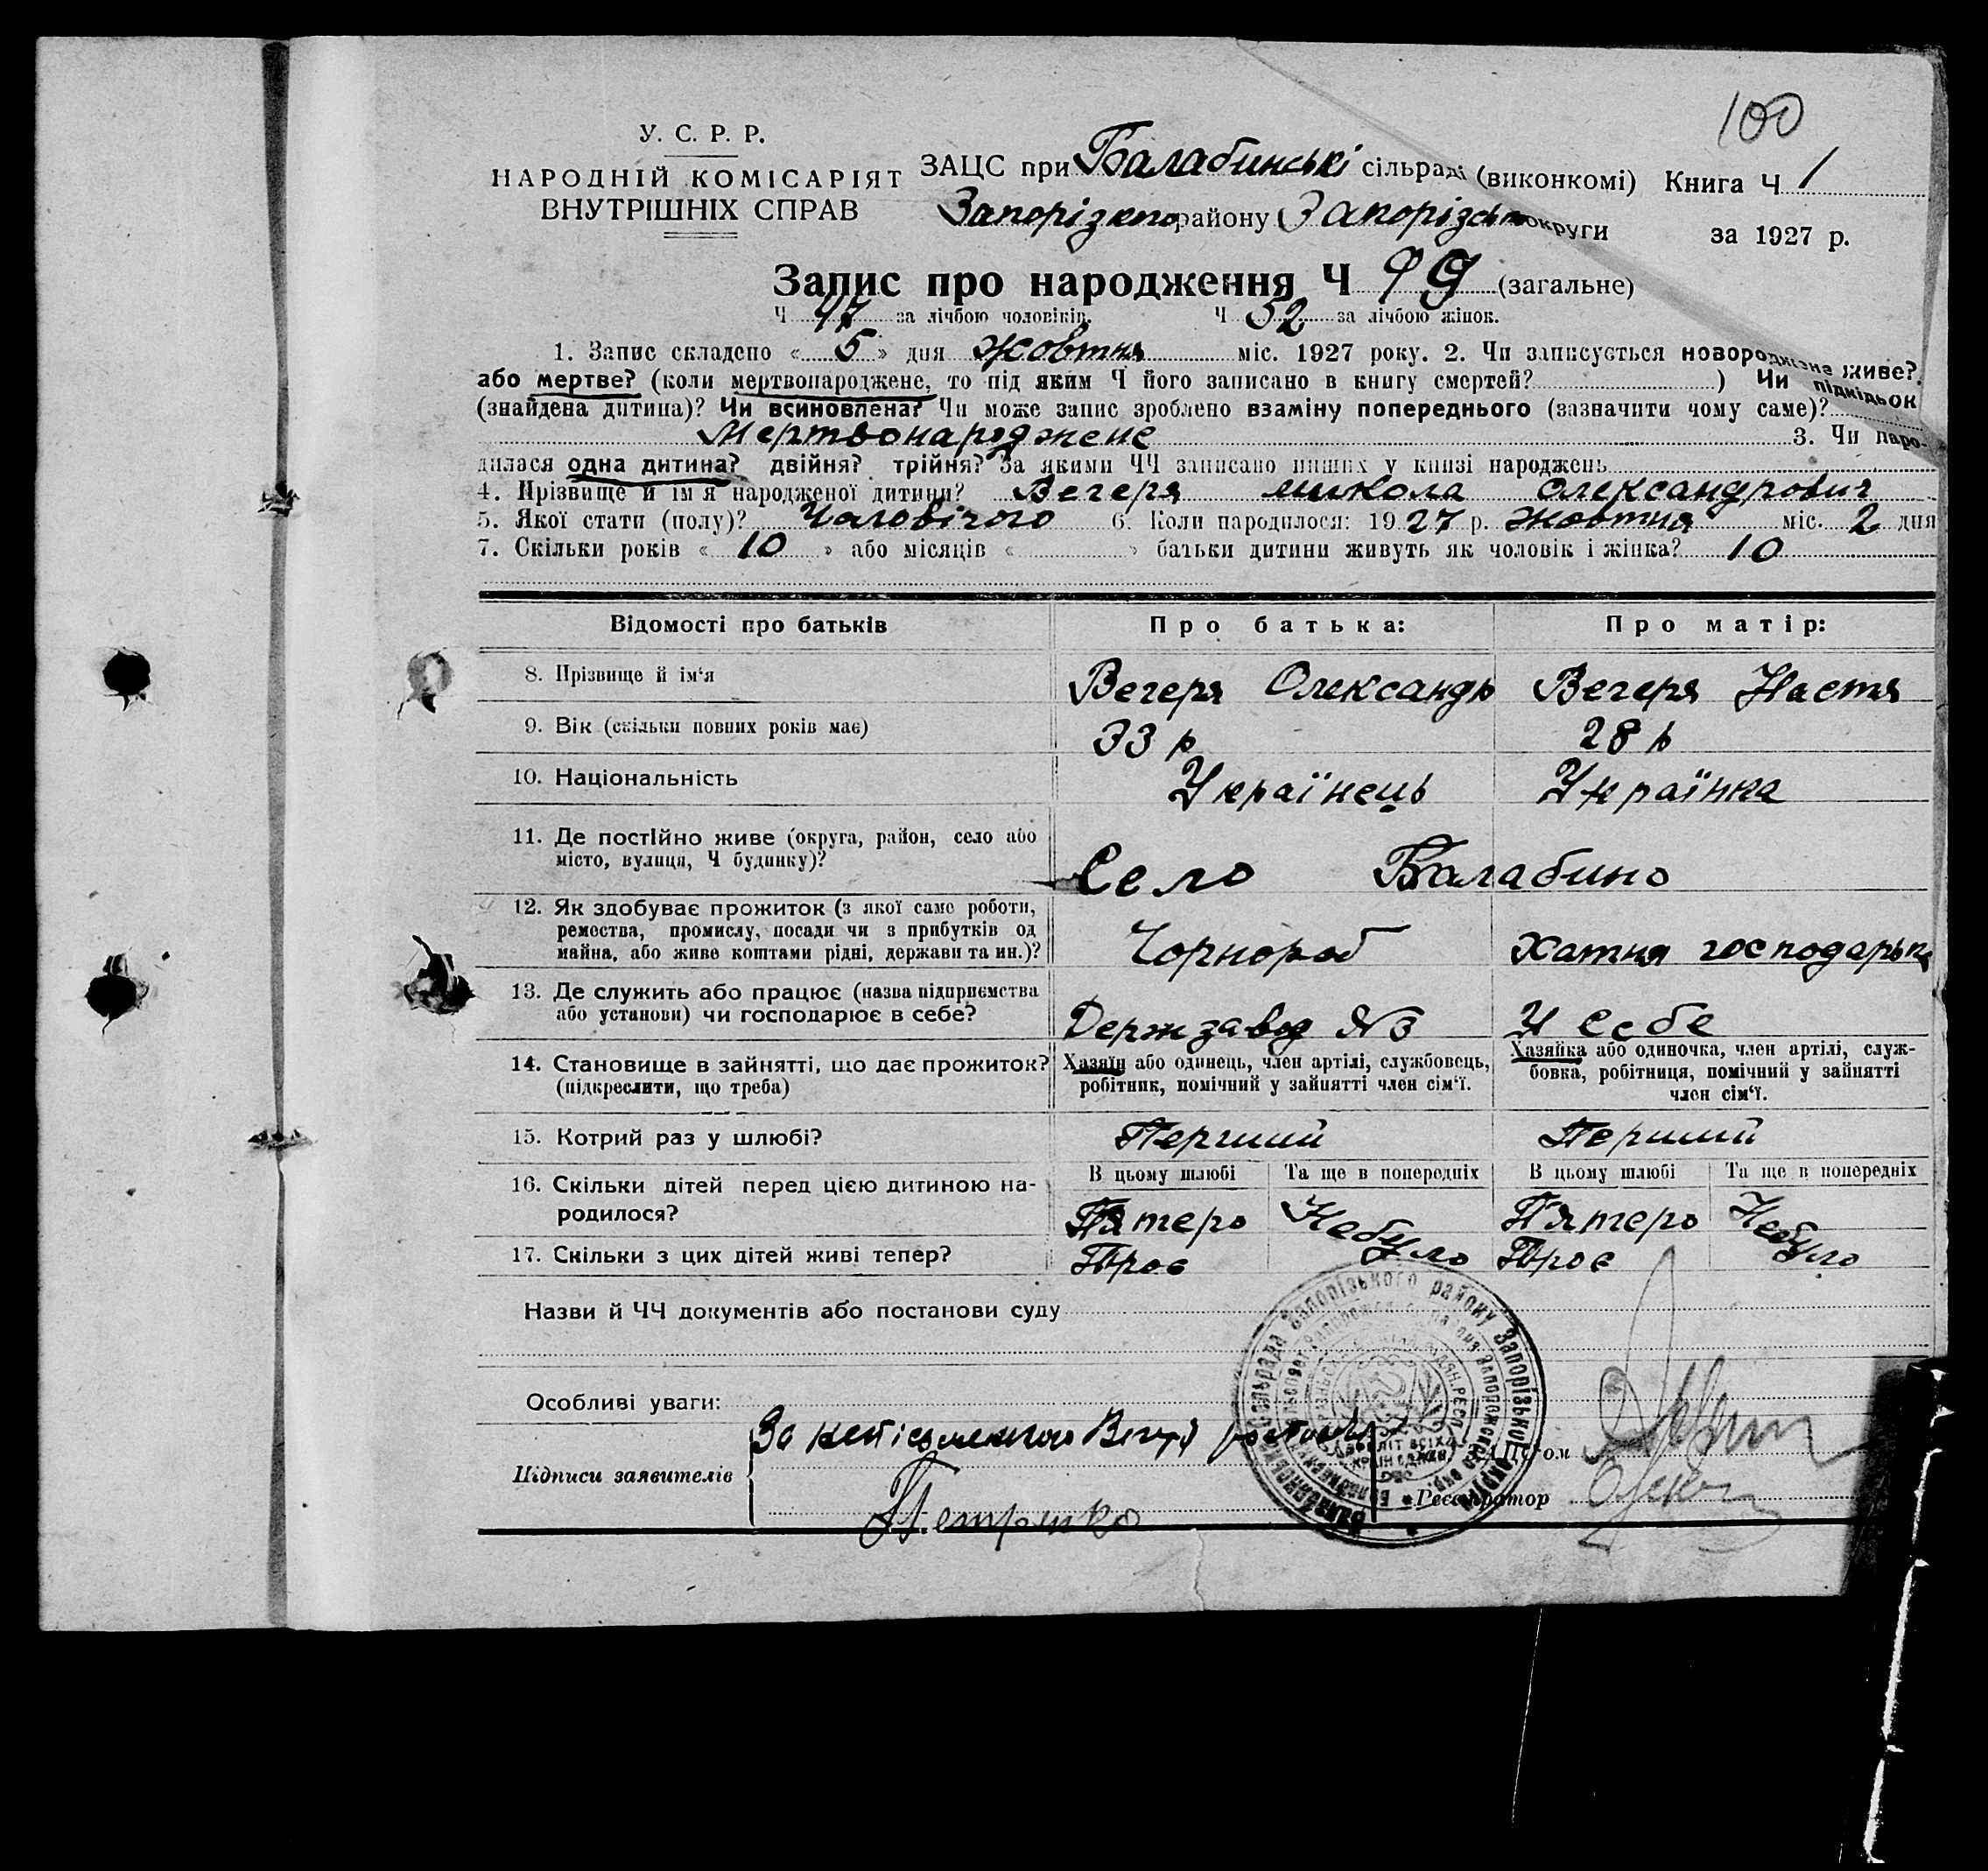 100
У. С. Р. Р.
НАРОДНІЙ КОМІСАРІЯТ
ВНУТРІШНІХ СПРАВ
ЗАЦС при Балабинські сільраді (виконкомі) Книга Ч 1
Запорізкого району Запорізької округи за 1927 р.
Запис про народження Ч 99 (загальне)
Ч 47 за лічбою чоловіків. Ч 52 за лічбою жінок.
1. Запис складено « 5 » дня Жовтня міс. 1927 року. 2. Чи записується новороджене живе?
або мертве? (коли мертвонароджене, то під яким Ч його записано в книгу смертей? ) Чи підкідьок
(знайдена дитина)? Чи всиновлена? Чи може запис зроблено взаміну попереднього (зазначити чому саме)?
Мертвонароджене 3. Чи наро-
дилася одна дитина? двійня? трійня? За якими ЧЧ записано инших у книзі народжень
4. Прізвище й ім'я народженої дитини? Вегеря Микола Олександрович
5. Якої стати (полу)? Чоловічого 6. Коли народилося: 1927 р. Жовтня міс. 2 дня
7. Скільки років « 10 » або місяців « » батьки дитини живуть як чоловік і жінка? 10
Відомості про батьків Про батька: Про матір:
8. Прізвище й ім'я Вегеря Олександр Вегеря Настя
9. Вік (скільки повних років має) 33 р 28 р
10. Національність Українець Українка
11. Де постійно живе (округа, район, село або
місто, вулиця, Ч будинку)? Село Балабино
12. Як здобуває прожиток (з якої саме роботи,
ремества, промислу, посади чи з прибутків од
майна, або живе коштами рідні, держави та ин.)? Чорнороб Хатня господарька
13. Де служить або працює (назва підприємства
або установи) чи господарює в себе? Держзавод №3 У себе
14. Становище в зайнятті, що дає прожиток?
(підкреслити, що треба)
Хазяїн або одинець, член артілі, службовець,
робітник, помічний у зайнятті член сім'ї.
Хазяйка або одиночка, член артілі, служ-
бовка, робітниця, помічний у зайнятті
член сім'ї.
15. Котрий раз у шлюбі? Перший Перший
16. Скільки дітей перед цією дитиною на-
родилося?
В цьому шлюбі Та ще в попередніх В цьому шлюбі Та ще в попередніх
П'ятеро Небуло П'ятеро Небуло
17. Скільки з цих дітей живі тепер? Троє Троє
Назви й ЧЧ документів або постанови суду
Особливі уваги:
Підписи заявителів За неписьменного Вегеря
Петренко
ЗАЦС'ом
Реєстратор
сільрада Запорізького району Запорізької округи